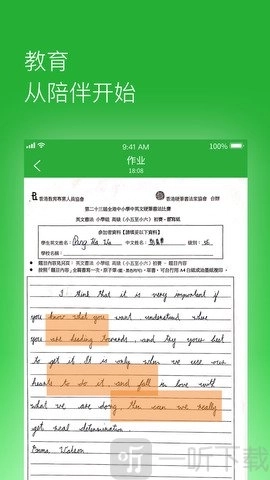 教育
从陪伴开始
9:41 AM
100%
作业
18:08
香港教育專業人員協會
香港硬筆書法家協會 合辦
第二十三屆全港中小學中英文硬筆書法比賽
英文書法 小學組 高級 (小五至小六) 初賽 - 謄寫紙
參加者資料【請填妥以下資料】
學生英文姓名： 中文姓名： 級別：
英文書法 小學組 高級 (小五至小六) 初賽
I think that it is very important if
you know what you want understand what
you are heading towards, and try your best
to get it. It is only when we use our
hearts to do it and fall in love with
what we are doing, then can we really
get real determination.
Emma Watson
听 一听下载